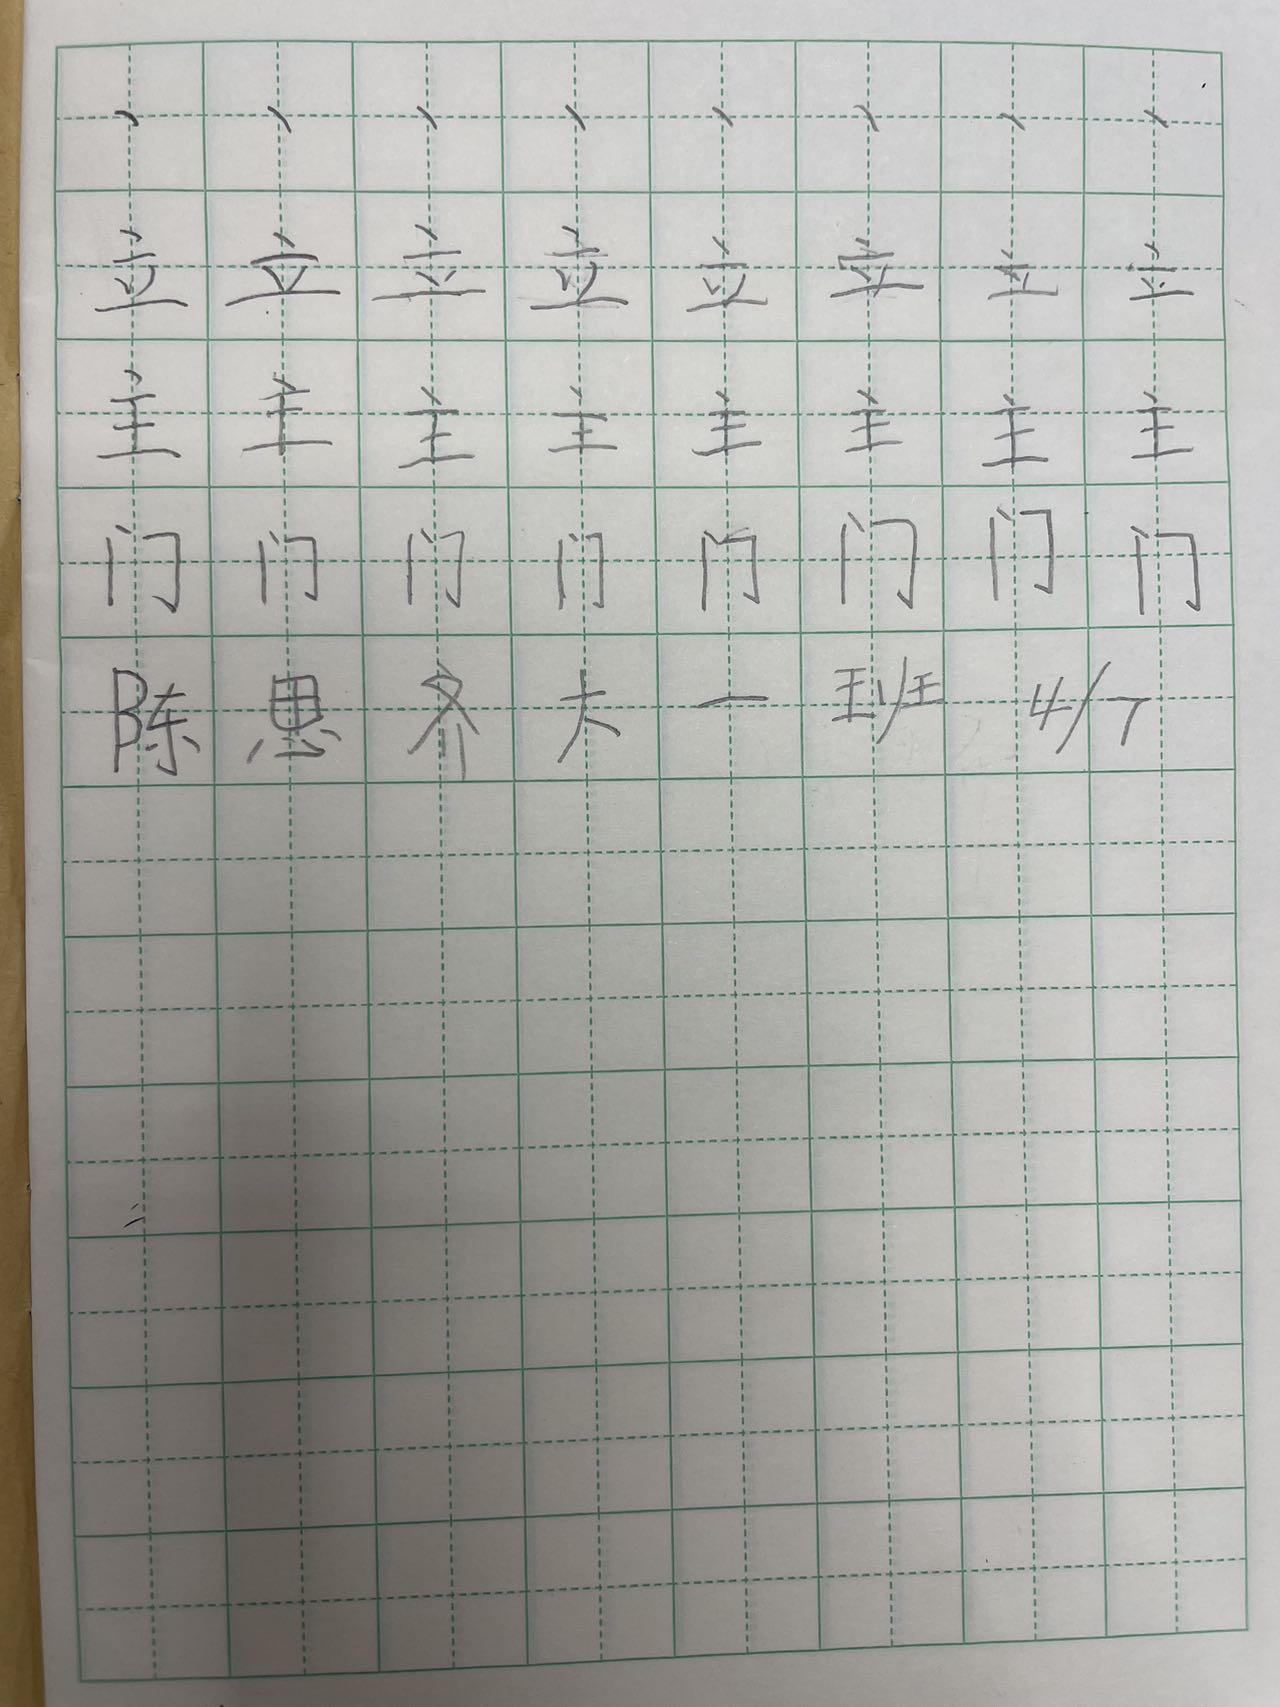 丶丶丶丶丶丶丶丶
立立立立立立立立
主主主主主主主主
门门门门门门门门
陈思齐大一班 4/7